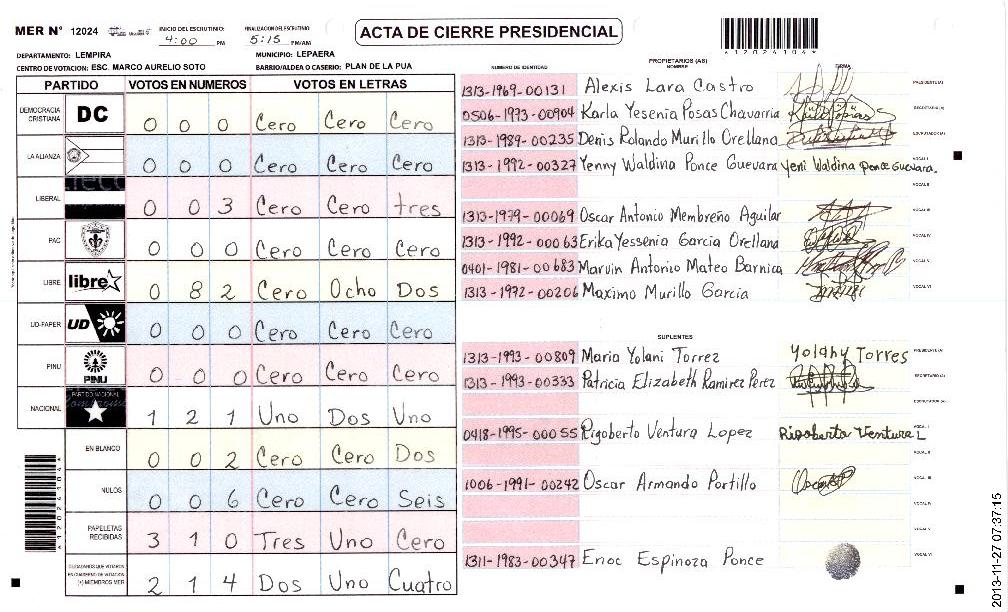 MER Nº 12024
INICIO DEL ESCRUTINIO: 4:00 PM
FINALIZACION DEL ESCRUTINIO 5:15 PM/AM
ACTA DE CIERRE PRESIDENCIAL
*12024104*
DEPARTAMENTO: LEMPIRA
MUNICIPIO: LEPAERA
CENTRO DE VOTACION: ESC. MARCO AURELIO SOTO
BARRIO/ALDEA O CASERIO: PLAN DE LA PUA
PARTIDO VOTOS EN NUMEROS VOTOS EN LETRAS
DEMOCRACIA CRISTIANA DC 0 0 0 Cero Cero Cero
LA ALIANZA 0 0 0 Cero Cero Cero
LIBERAL 0 0 3 Cero Cero tres
PAC 0 0 0 Cero Cero Cero
LIBRE libre 0 8 2 Cero Ocho Dos
UD-FAPER UD 0 0 0 Cero Cero Cero
PINU PINU 0 0 0 Cero Cero Cero
NACIONAL PARTIDO NACIONAL 1 2 1 Uno Dos Uno
EN BLANCO 0 0 2 Cero Cero Dos
NULOS 0 0 6 Cero Cero Seis
PAPELETAS RECIBIDAS 3 1 0 Tres Uno Cero
CIUDADANOS QUE VOTARON EN CUADERNO DE VOTACION (+) MIEMBROS MER 2 1 4 Dos Uno Cuatro
*12024104*
PROPIETARIOS (AS)
NUMERO DE IDENTIDAD NOMBRE FIRMA
1313-1969-00131 Alexis Lara Castro PRESIDENTE (A)
0506-1973-00904 Karla Yesenia Posas Chavarria SECRETARIO (A)
1313-1989-00235 Denis Rolando Murillo Orellana ESCRUTADOR (A)
1313-1992-00327 Yenny Waldina Ponce Guevara Yeni Waldina Ponce Guevara. VOCAL I
VOCAL II
1313-1979-00069 Oscar Antonio Membreño Aguilar VOCAL III
1313-1992-00063 Erika Yessenia Garcia Orellana VOCAL IV
0401-1981-00683 Marvin Antonio Mateo Barnica VOCAL V
1313-1972-00206 Maximo Murillo Garcia VOCAL VI
SUPLENTES
1313-1993-00809 Maria Yolani Torrez Yolany Torres PRESIDENTE (A)
1313-1993-00333 Patricia Elizabeth Ramirez Perez SECRETARIO (A)
ESCRUTADOR (A)
0418-1995-00055 Rigoberto Ventura Lopez Rigoberto Ventura L VOCAL I
VOCAL II
1006-1991-00242 Oscar Armando Portillo VOCAL III
VOCAL IV
VOCAL V
1311-1983-00347 Enoc Espinoza Ponce VOCAL VI
2013-11-27 07:37:15